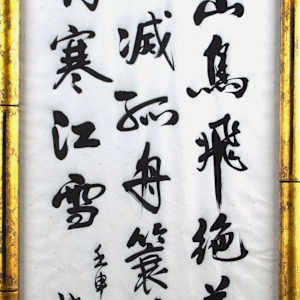 山鳥飛絕
滅孤舟簑
寒江雪
壬申